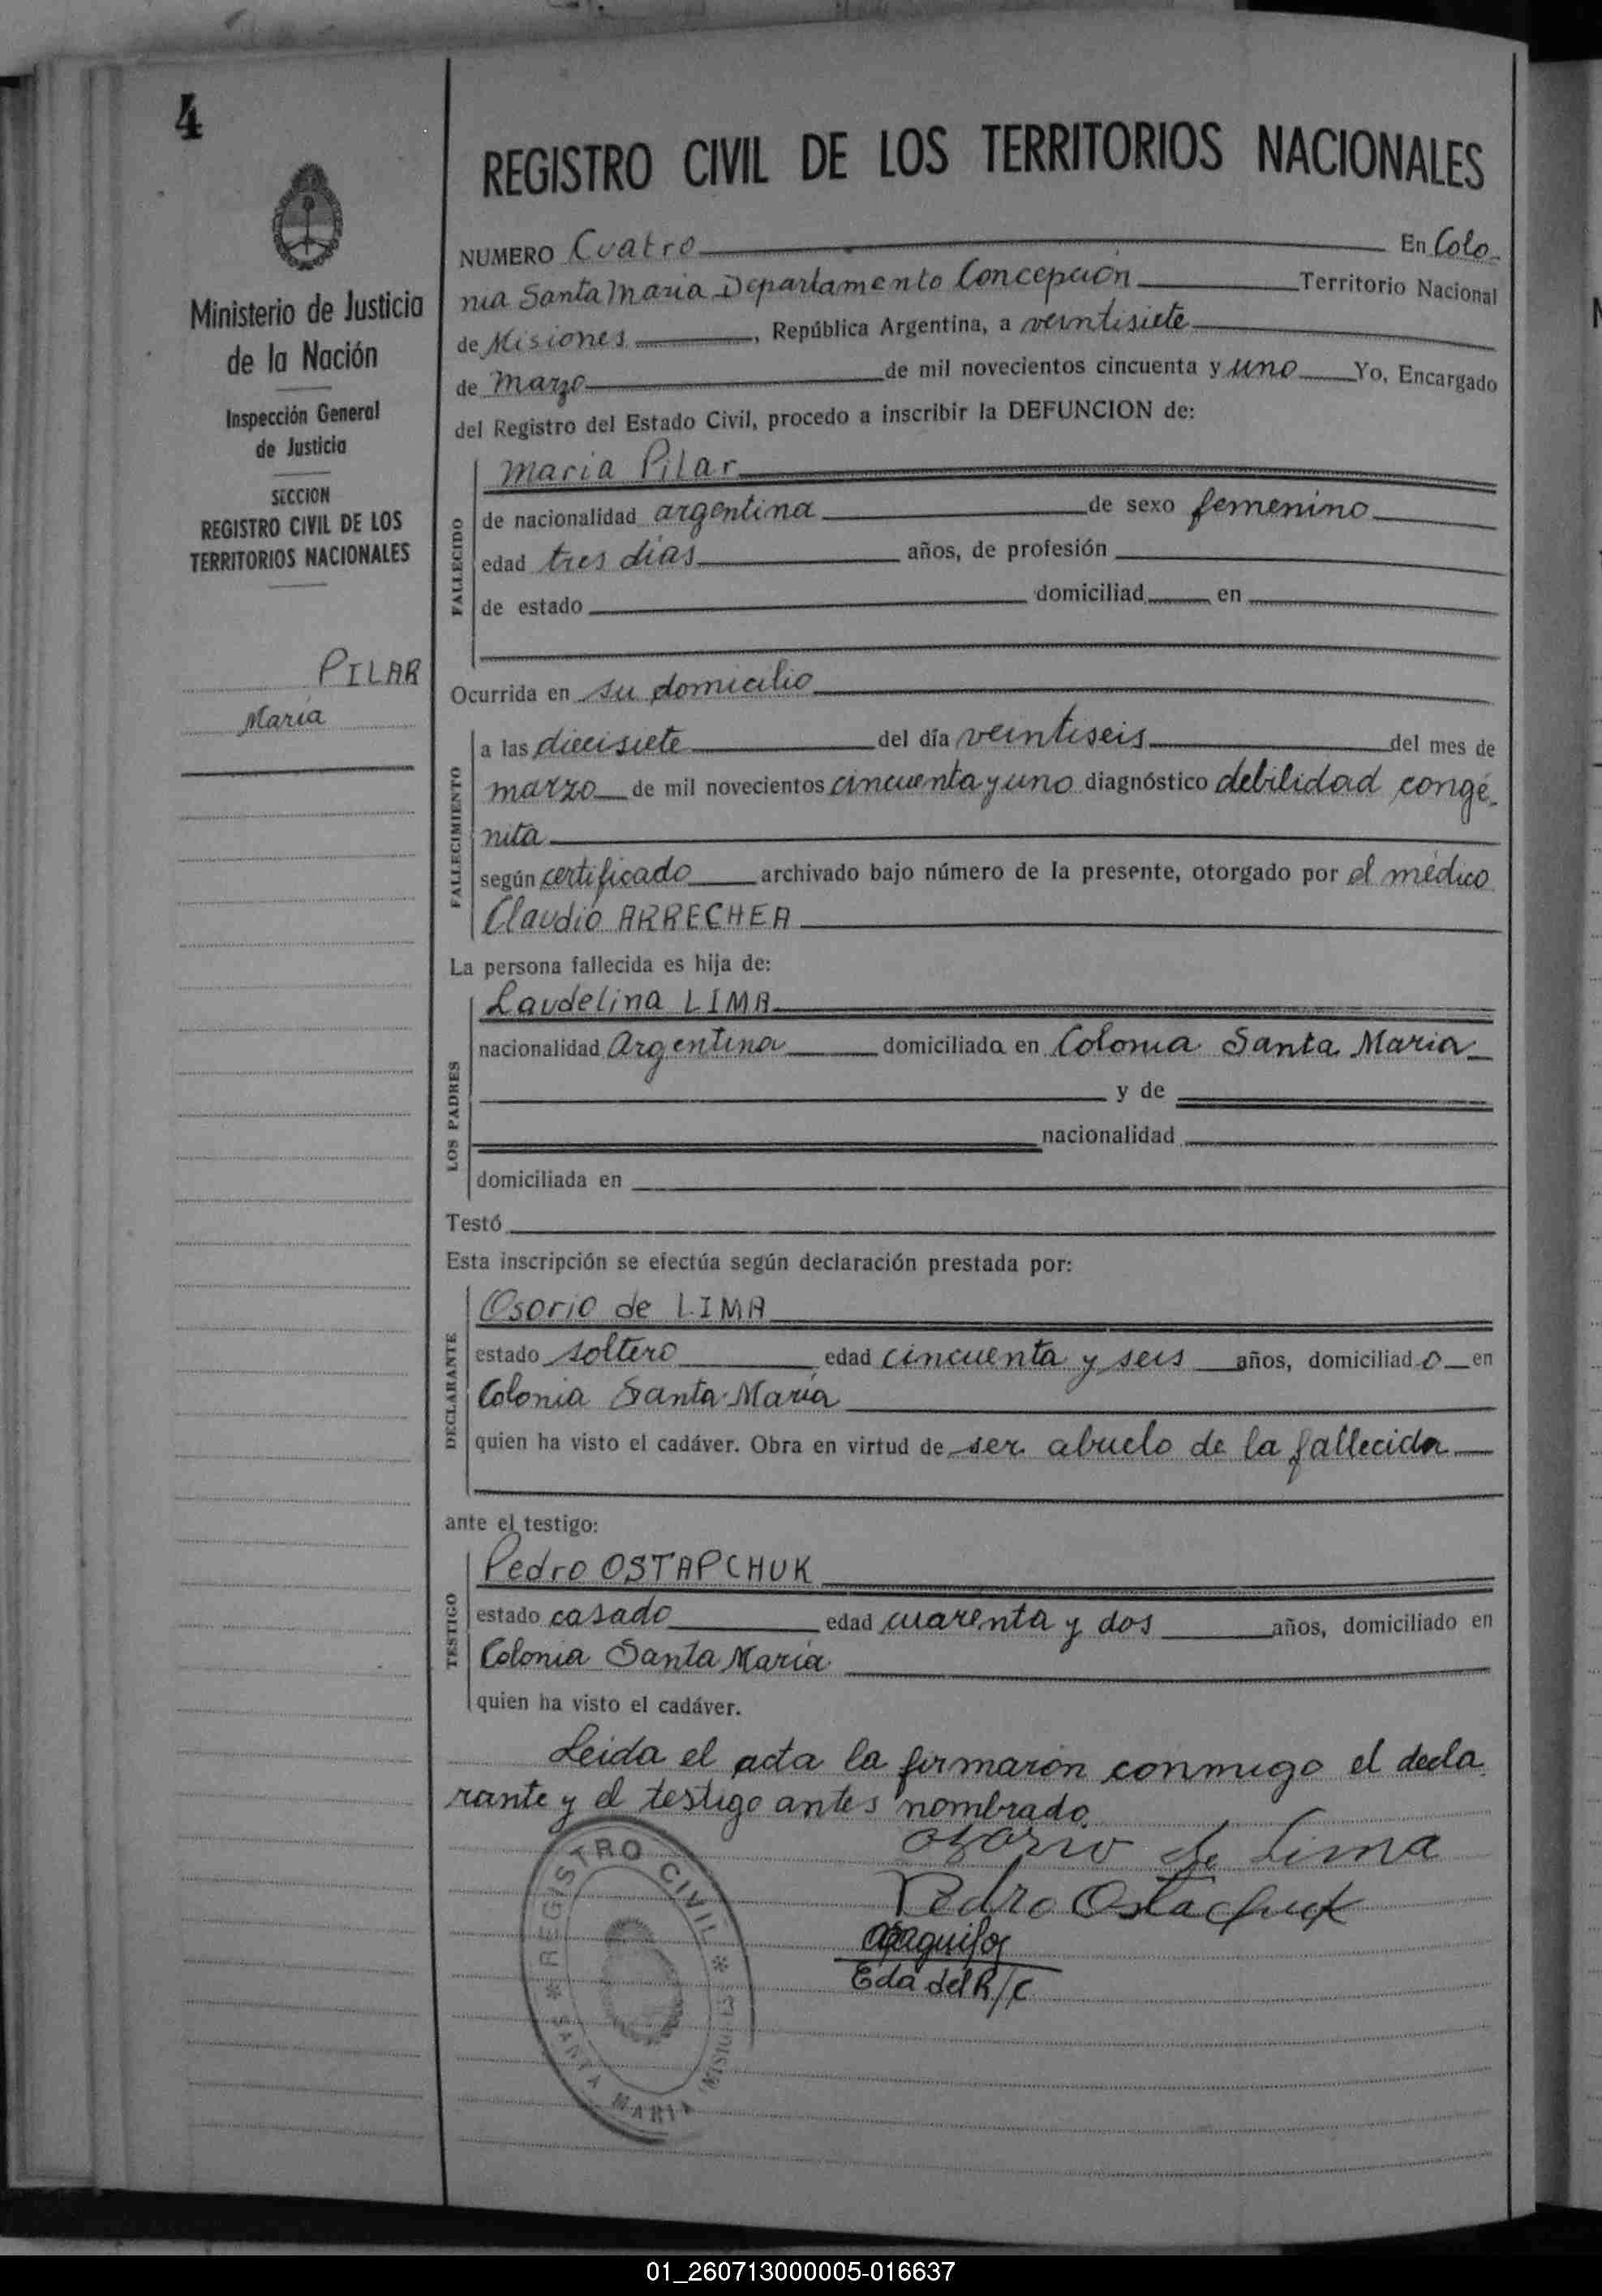 4
Ministerio de Justicia
de la Nación
Inspección General
de Justicia
SECCION
REGISTRO CIVIL DE LOS
TERRITORIOS NACIONALES
PILAR
María
REGISTRO CIVIL DE LOS TERRITORIOS NACIONALES
NUMERO Cuatro En Colo-
nia Santa María Departamento Concepción Territorio Nacional
de Misiones, República Argentina, a veintisiete
de Marzo de mil novecientos cincuenta y uno Yo, Encargado
del Registro del Estado Civil, procedo a inscribir la DEFUNCION de:
FALLECIDO
Maria Pilar
de nacionalidad argentina de sexo femenino
edad tres días años, de profesión
de estado domiciliad en
Ocurrida en su domicilio
FALLECIMIENTO
a las diecisiete del día veintiseis del mes de
marzo de mil novecientos cincuenta y uno diagnóstico debilidad congé-
nita
según certificado archivado bajo número de la presente, otorgado por el médico
Claudio ARRECHEA
La persona fallecida es hija de:
LOS PADRES
Laudelina LIMA
nacionalidad Argentina domiciliada en Colonia Santa María
y de
nacionalidad
domiciliada en
Testó
Esta inscripción se efectúa según declaración prestada por:
DECLARANTE
Osorio de LIMA
estado soltero edad cincuenta y seis años, domiciliado en
Colonia Santa María
quien ha visto el cadáver. Obra en virtud de ser abuelo de la fallecida
ante el testigo:
TESTIGO
Pedro OSTAPCHUK
estado casado edad cuarenta y dos años, domiciliado en
Colonia Santa María
quien ha visto el cadáver.
Leida el acta la firmaron conmigo el decla
rante y el testigo antes nombrado.
ozorio de Lima
Pedro Ostachuk
Eda del R/C
REGISTRO CIVIL
SANTA MARIA (MISIONES)
01_260713000005-016637